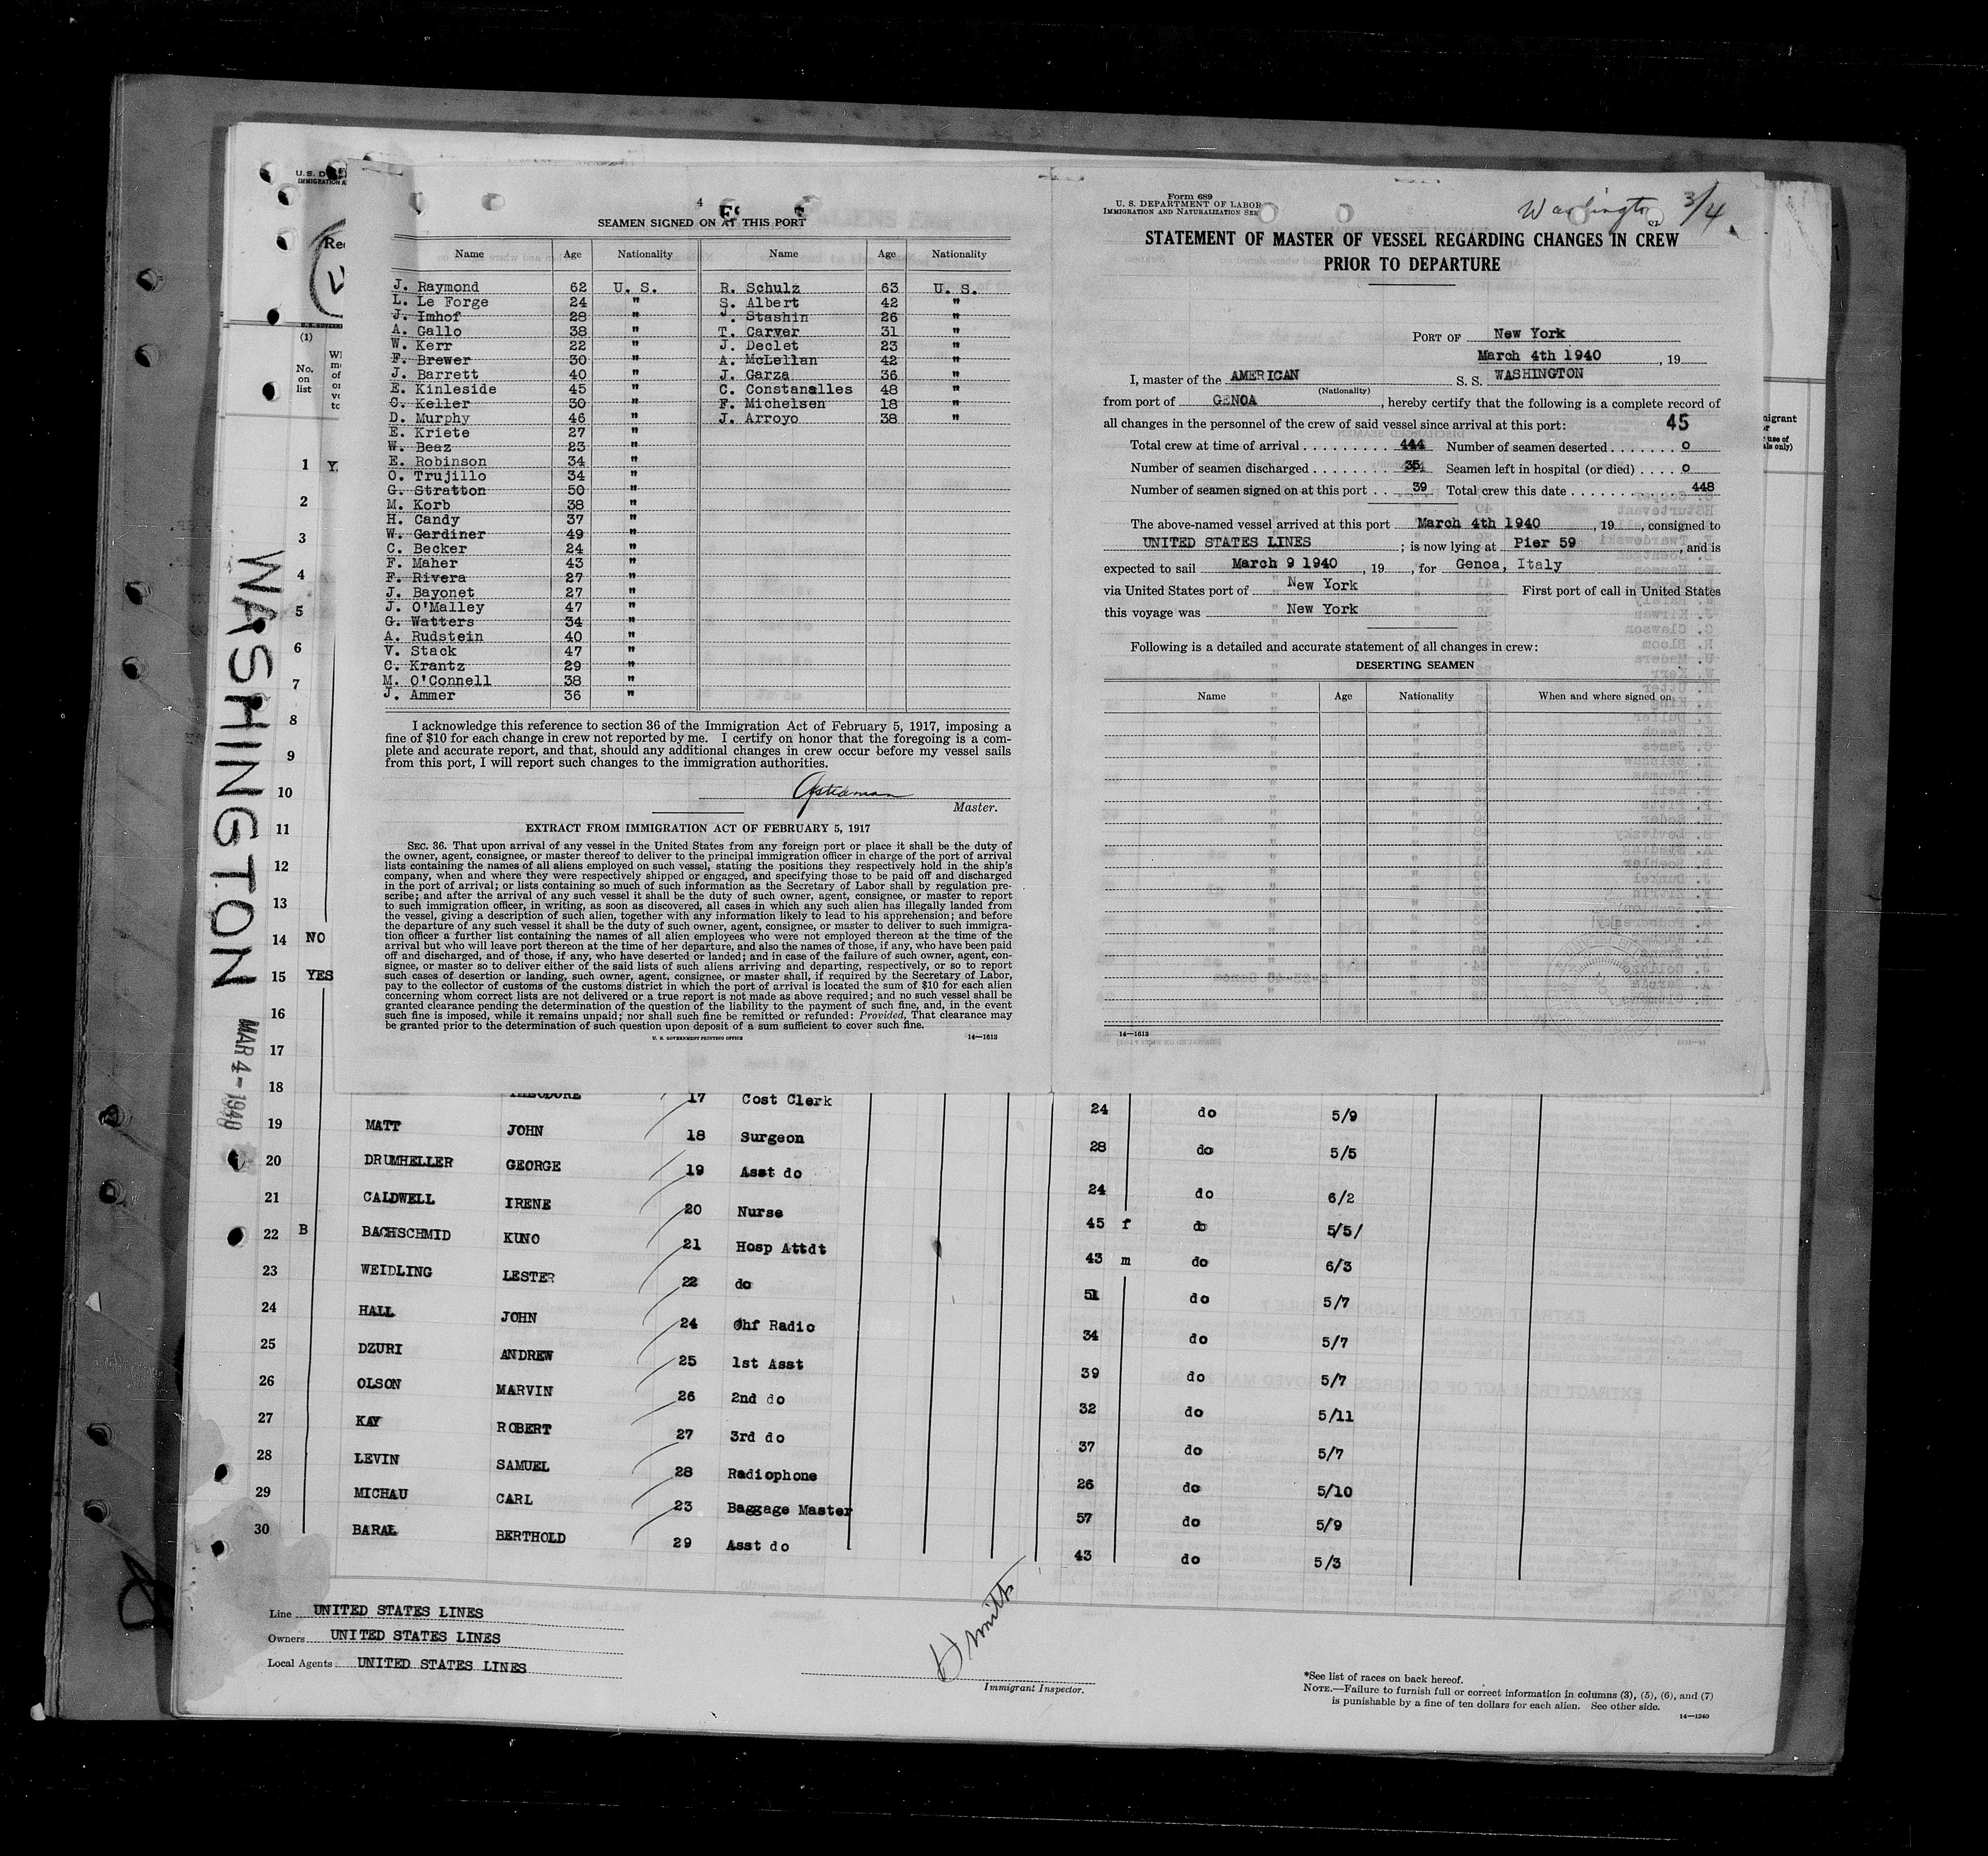 U. S. D
IMMIGRATION A
Rec
(1)
No.
on
list
4
SEAMEN SIGNED ON AT THIS PORT
Name Age Nationality Name Age Nationality
J. Raymond 62 U. S. R. Schulz 63 U. S.
L. Le Forge 24 " S. Albert 42 "
J. Imhof 28 " J. Stashin 26 "
A. Gallo 38 " T. Carver 31 "
W. Kerr 22 " J. Declet 23 "
F. Brewer 30 " A. McLellan 42 "
J. Barrett 40 " J. Garza 36 "
E. Kinleside 45 " C. Constanalles 48 "
C. Keller 30 " F. Michelsen 18 "
D. Murphy 46 " J. Arroyo 38 "
E. Kriete 27 "
W. Beaz 23 "
E. Robinson 34 "
O. Trujillo 34 "
G. Stratton 50 "
M. Korb 38 "
H. Candy 37 "
W. Gardiner 49 "
C. Becker 24 "
F. Maher 43 "
F. Rivera 27 "
J. Bayonet 27 "
J. O'Malley 47 "
G. Watters 34 "
A. Rudstein 40 "
V. Stack 47 "
C. Krantz 29 "
M. O'Connell 38 "
J. Ammer 36 "
I acknowledge this reference to section 36 of the Immigration Act of February 5, 1917, imposing a
fine of $10 for each change in crew not reported by me. I certify on honor that the foregoing is a com-
plete and accurate report, and that, should any additional changes in crew occur before my vessel sails
from this port, I will report such changes to the immigration authorities.
Master.
EXTRACT FROM IMMIGRATION ACT OF FEBRUARY 5, 1917
SEC. 36. That upon arrival of any vessel in the United States from any foreign port or place it shall be the duty of
the owner, agent, consignee, or master thereof to deliver to the principal immigration officer in charge of the port of arrival
lists containing the names of all aliens employed on such vessel, stating the positions they respectively hold in the ship's
company, when and where they were respectively shipped or engaged, and specifying those to be paid off and discharged
in the port of arrival; or lists containing so much of such information as the Secretary of Labor shall by regulation pre-
scribe; and after the arrival of any such vessel it shall be the duty of such owner, agent, consignee, or master to report
to such immigration officer, in writing, as soon as discovered, all cases in which any such alien has illegally landed from
the vessel, giving a description of such alien, together with any information likely to lead to his apprehension; and before
the departure of any such vessel it shall be the duty of such owner, agent, consignee, or master to deliver to such immigra-
tion officer a further list containing the names of all alien employees who were not employed thereon at the time of the
arrival but who will leave port thereon at the time of her departure, and also the names of those, if any, who have been paid
off and discharged, and of those, if any, who have deserted or landed; and in case of the failure of such owner, agent, con-
signee, or master so to deliver either of the said lists of such aliens arriving and departing, respectively, or so to report
such cases of desertion or landing, such owner, agent, consignee, or master shall, if required by the Secretary of Labor,
pay to the collector of customs of the customs district in which the port of arrival is located the sum of $10 for each alien
concerning whom correct lists are not delivered or a true report is not made as above required; and no such vessel shall be
granted clearance pending the determination of the question of the liability to the payment of such fine, and, in the event
such fine is imposed, while it remains unpaid; nor shall such fine be remitted or refunded: Provided, That clearance may
be granted prior to the determination of such question upon deposit of a sum sufficient to cover such fine.
U. S. GOVERNMENT PRINTING OFFICE 14—1613
Form 689
U. S. DEPARTMENT OF LABOR
IMMIGRATION AND NATURALIZATION SER
Washington 3/4
STATEMENT OF MASTER OF VESSEL REGARDING CHANGES IN CREW
PRIOR TO DEPARTURE
PORT OF New York
March 4th 1940, 19
I, master of the AMERICAN S. S. WASHINGTON
(Nationality)
from port of GENOA, hereby certify that the following is a complete record of
all changes in the personnel of the crew of said vessel since arrival at this port: 45
Total crew at time of arrival 444 Number of seamen deserted 0
Number of seamen discharged 35 Seamen left in hospital (or died) 0
Number of seamen signed on at this port 39 Total crew this date 448
The above-named vessel arrived at this port March 4th 1940, 19, consigned to
UNITED STATES LINES; is now lying at Pier 59, and is
expected to sail March 9 1940, 19, for Genoa, Italy
via United States port of New York First port of call in United States
this voyage was New York
Following is a detailed and accurate statement of all changes in crew:
DESERTING SEAMEN
Name Age Nationality When and where signed on
14—1613
WASHINGTON
MAR 4-1940
1 Y
2
3
4
5
6
7
8
9
10
11
12
13
14 NO
15 YES
16
17
18 THEODORE 17 Cost Clerk 24 do 5/9
19 MATT JOHN 18 Surgeon 28 do 5/5
20 DRUMHELLER GEORGE 19 Asst do 24 do 6/2
21 CALDWELL IRENE 20 Nurse 45 f do 5/5/
22 B BACHSCHMID KUNO 21 Hosp Attdt 43 m do 6/3
23 WEIDLING LESTER 22 do 51 do 5/7
24 HALL JOHN 24 Chf Radio 34 do 5/7
25 DZURI ANDREW 25 1st Asst 39 do 5/7
26 OLSON MARVIN 26 2nd do 32 do 5/11
27 KAY ROBERT 27 3rd do 37 do 5/7
28 LEVIN SAMUEL 28 Radiophone 26 do 5/10
29 MICHAU CARL 23 Baggage Master 57 do 5/9
30 BARAL BERTHOLD 29 Asst do 43 do 5/3
Line UNITED STATES LINES
Owners UNITED STATES LINES
Local Agents UNITED STATES LINES
H Smith
Immigrant Inspector.
*See list of races on back hereof.
NOTE.—Failure to furnish full or correct information in columns (3), (5), (6), and (7)
is punishable by a fine of ten dollars for each alien. See other side.
14—1240